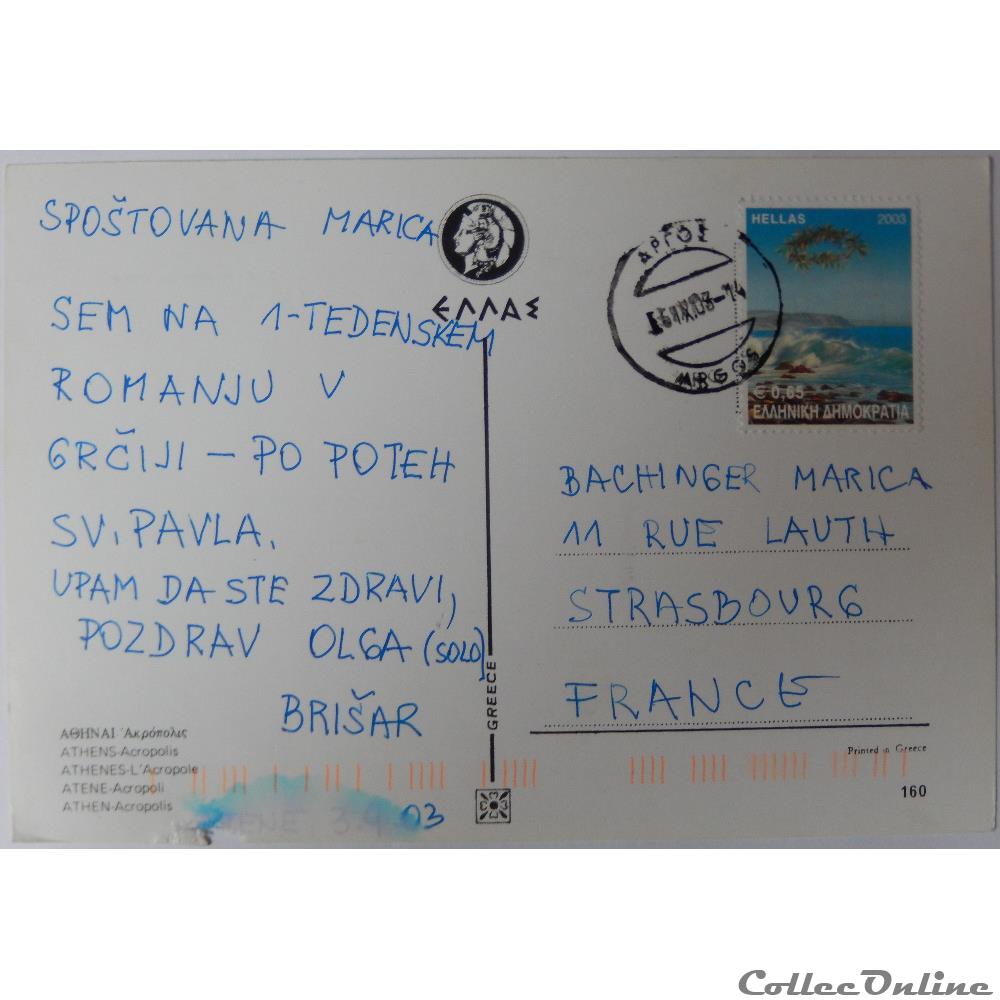 SPOŠTOVANA MARICA
SEM NA 1-TEDENSKEM
ROMANJU V
GRČIJI – PO POTEH
SV. PAVLA.
UPAM DA STE ZDRAVI,
POZDRAV OLGA (SOLO)
BRIŠAR
ΑΘΗΝΑΙ Ἀκρόπολις
ATHENS-Acropolis
ATHENES-L'Acropole
ATENE-Acropoli
ATHEN-Acropolis
3.9.03
ΕΛΛΑΣ
GREECE
ΑΡΓΟΣ
ARGOS
HELLAS 2003
€ 0,65
ΕΛΛΗΝΙΚΗ ΔΗΜΟΚΡΑΤΙΑ
BACHINGER MARICA
11 RUE LAUTH
STRASBOURG
FRANCE
Printed in Greece
160
CollecOnline